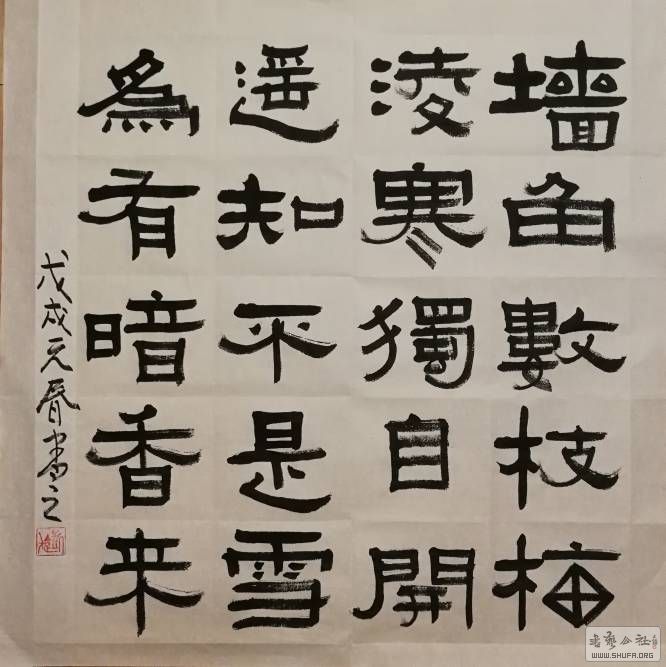 墙角數枝梅
淩寒獨自開
遥知平是雪
為有暗香来
戊戌元春書之
書藝公社
WWW.SHUFA.ORG